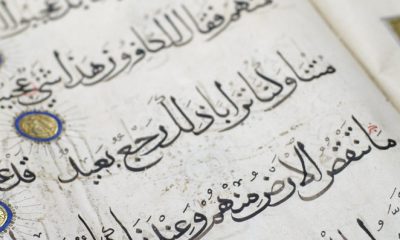 منهم فقال الكافرون هذا شيء عجيب
متنا وكنا ترابا ذلك رجع بعيد قد
ما تنقص الأرض منهم وعندنا